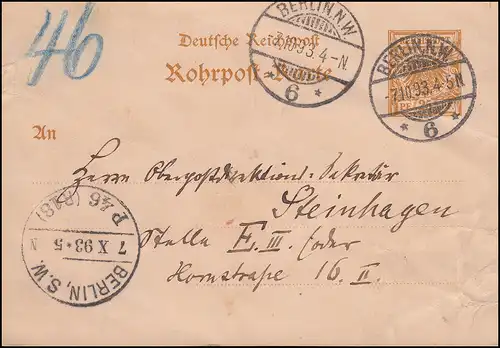 46
Deutsche Reichspost
Rohrpost-Karte
BERLIN, N.W.
7.10.93.4-N.
* 6 *
BERLIN, N.W.
7.10.93.4-5N
* 6 *
An
Herrn Oberpostdirektions-Sekretär
Steinhagen
Stelle E. III. (oder
Hornstraße 16. II.
P 46 (R18)
7 X 93 * 5 N
BERLIN, S.W.